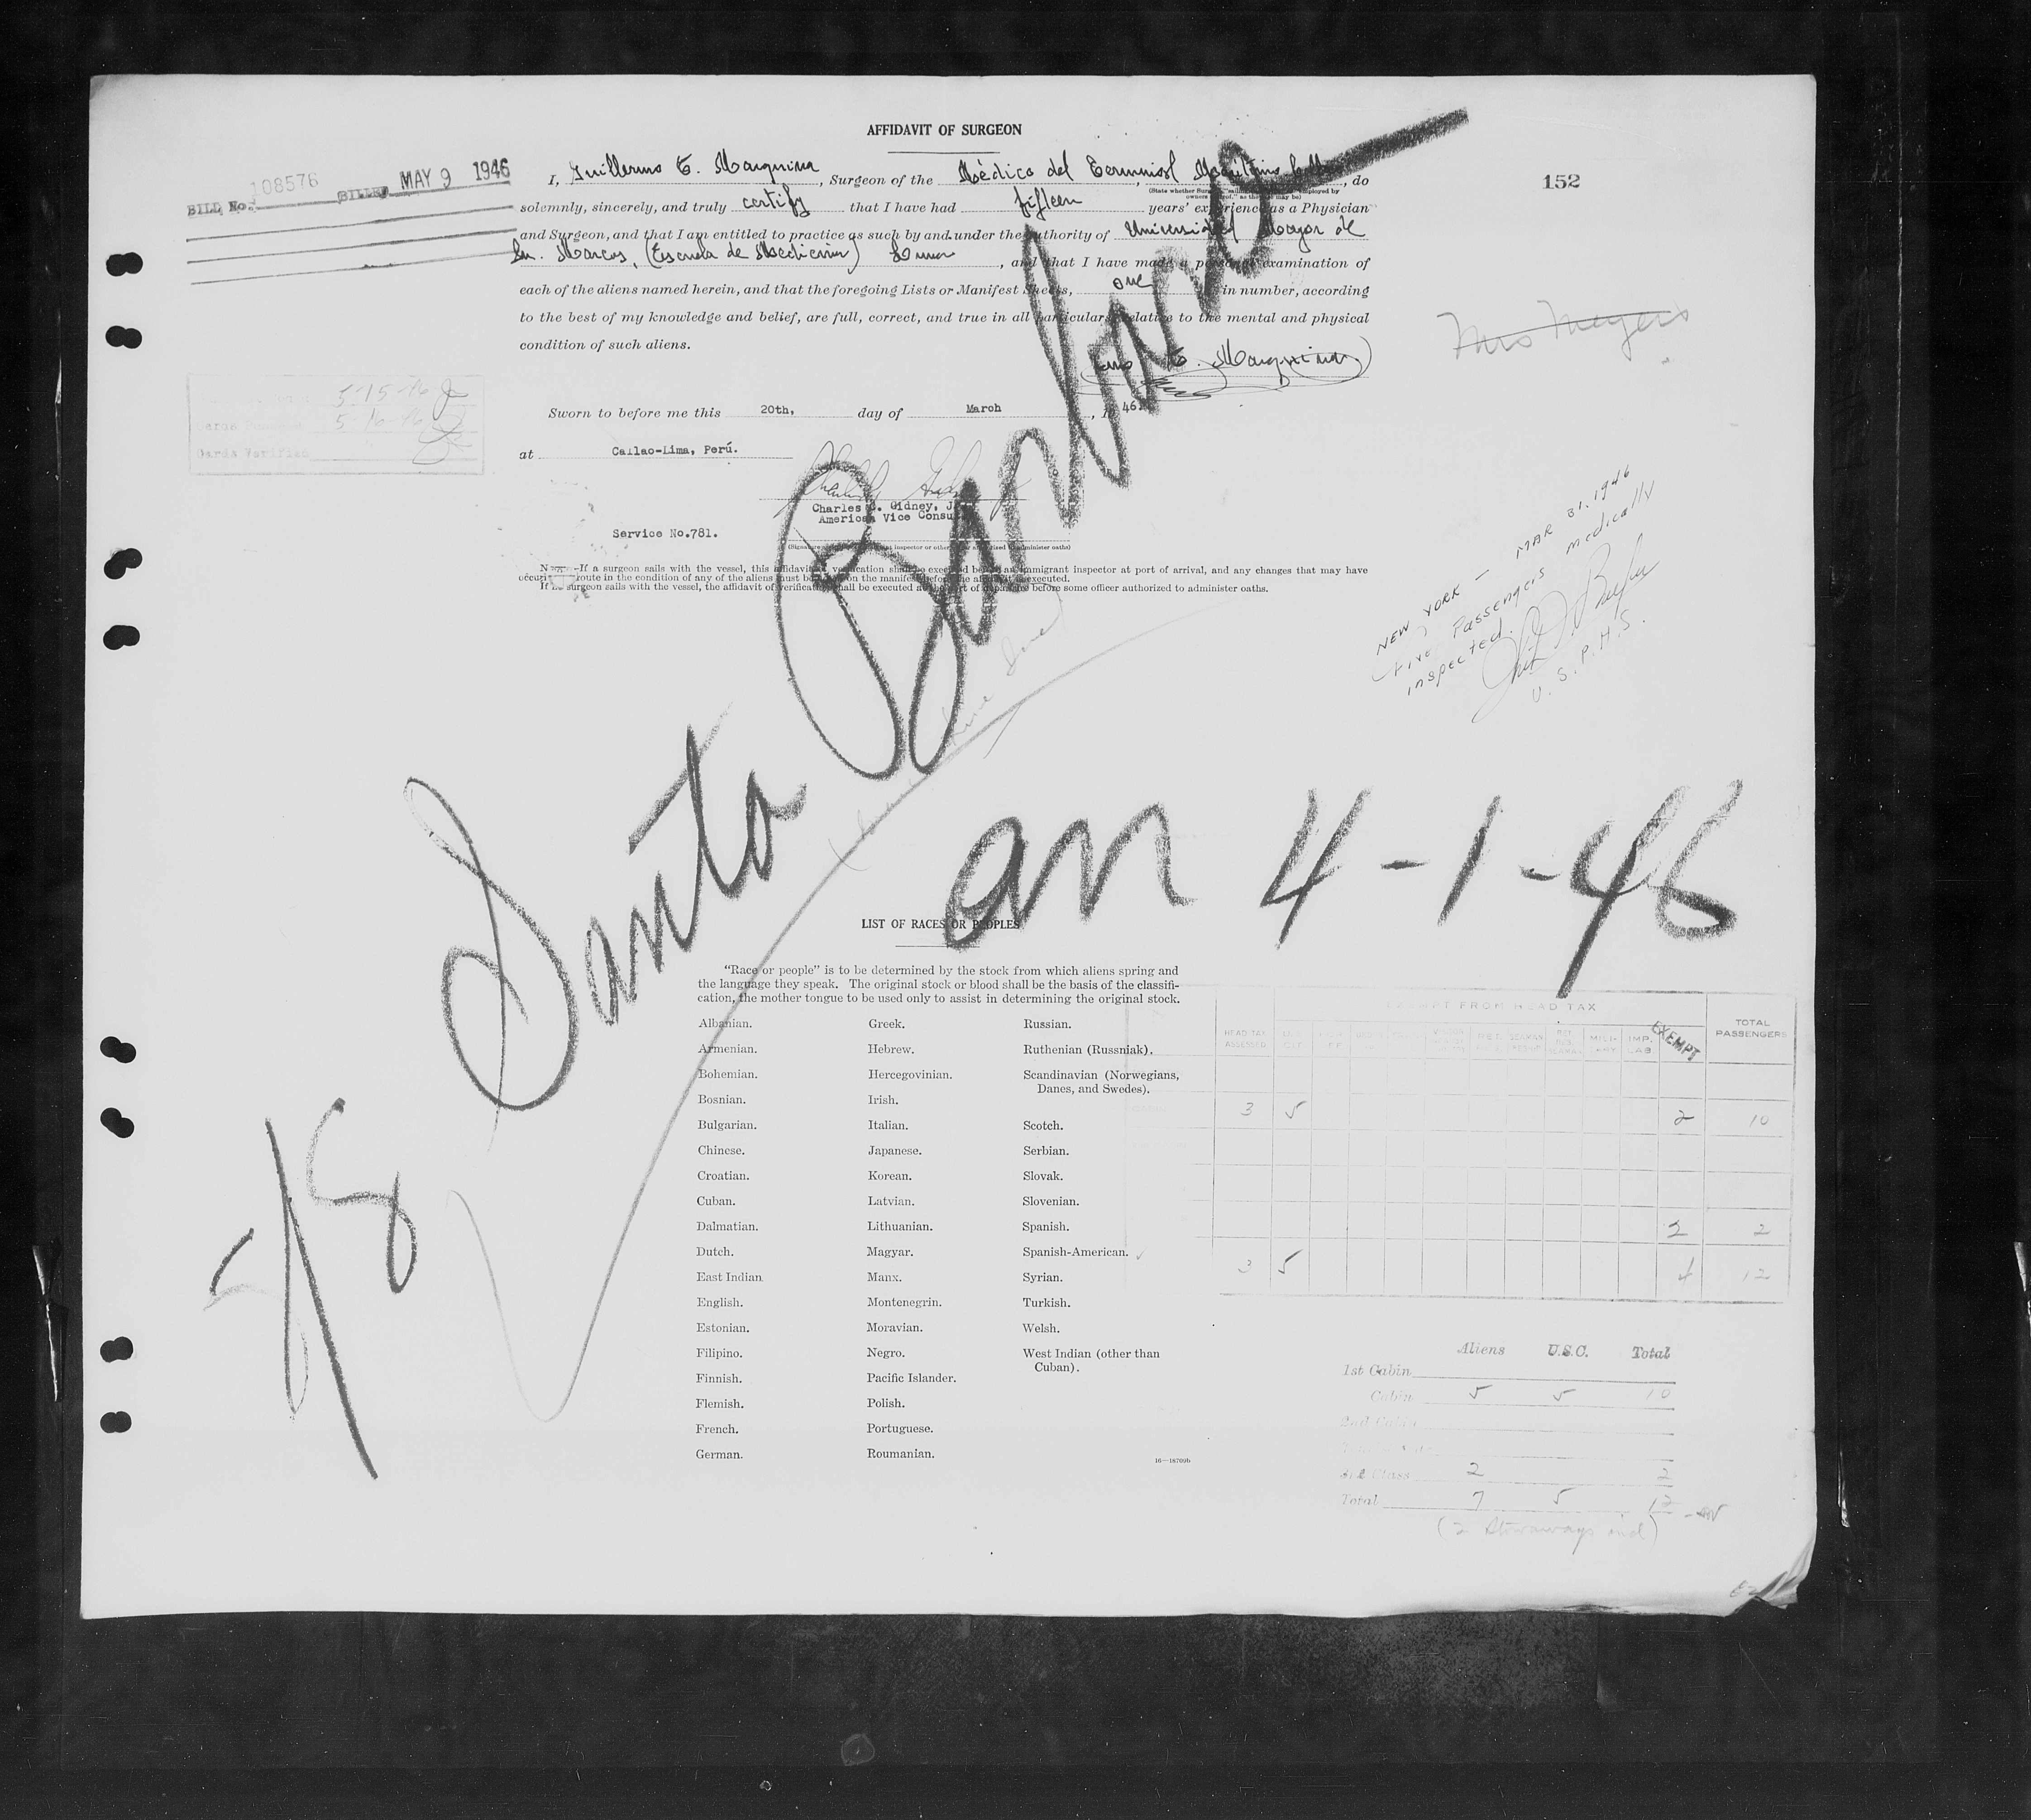 AFFIDAVIT OF SURGEON
152
BILL No. 108576 BILLED MAY 9 1946
I, Guillermo E. Marquina, Surgeon of the Médico del Terminal Marítimo, do
solemnly, sincerely, and truly certify that I have had fifteen years' experience as a Physician
and Surgeon, and that I am entitled to practice as such by and under the authority of Universidad Mayor de
Sn. Marcos, (Escuela de Medicina) Lima, and that I have made a personal examination of
each of the aliens named herein, and that the foregoing Lists or Manifest Sheets, one in number, according
to the best of my knowledge and belief, are full, correct, and true in all particulars relative to the mental and physical
condition of such aliens.
Mrs Meyers
E. Marquina
5-15-46
5-16-46
Cards Verified
Sworn to before me this 20th, day of March, 1946
at Callao-Lima, Perú.
Charles C. Gidney, Jr.
American Vice Consul
Service No.781.
NOTE.—If a surgeon sails with the vessel, this affidavit of verification shall be executed before an immigrant inspector at port of arrival, and any changes that may have
occurred en route in the condition of any of the aliens must be noted on the manifest before the affidavit is executed.
If no surgeon sails with the vessel, the affidavit of verification shall be executed at the port of departure before some officer authorized to administer oaths.
NEW YORK — MAR 31. 1946
Five Passengers medically
inspected.
U. S. P. H. S.
Santa Barbara
arr 4-1-46
LIST OF RACES OR PEOPLES
"Race or people" is to be determined by the stock from which aliens spring and
the language they speak. The original stock or blood shall be the basis of the classifi-
cation, the mother tongue to be used only to assist in determining the original stock.
Albanian.
Armenian.
Bohemian.
Bosnian.
Bulgarian.
Chinese.
Croatian.
Cuban.
Dalmatian.
Dutch.
East Indian
English.
Estonian.
Filipino.
Finnish.
Flemish.
French.
German.
Greek.
Hebrew.
Hercegovinian.
Irish.
Italian.
Japanese.
Korean.
Latvian.
Lithuanian.
Magyar.
Manx.
Montenegrin.
Moravian.
Negro.
Pacific Islander.
Polish.
Portuguese.
Roumanian.
Russian.
Ruthenian (Russniak).
Scandinavian (Norwegians,
Danes, and Swedes).
Scotch.
Serbian.
Slovak.
Slovenian.
Spanish.
Spanish-American.
Syrian.
Turkish.
Welsh.
West Indian (other than
Cuban).
16—18709b
EXEMPT FROM HEAD TAX
HEAD TAX ASSESSED
MILI- TARY
IMP. LAB
EXEMPT
TOTAL PASSENGERS
3 5 2 10
2 2
3 5 4 12
Aliens U.S.C. Total
1st Cabin
Cabin 5 5 10
2nd Cabin
3rd Class 2 2
Total 7 5 12
(2 Stowaways incl)